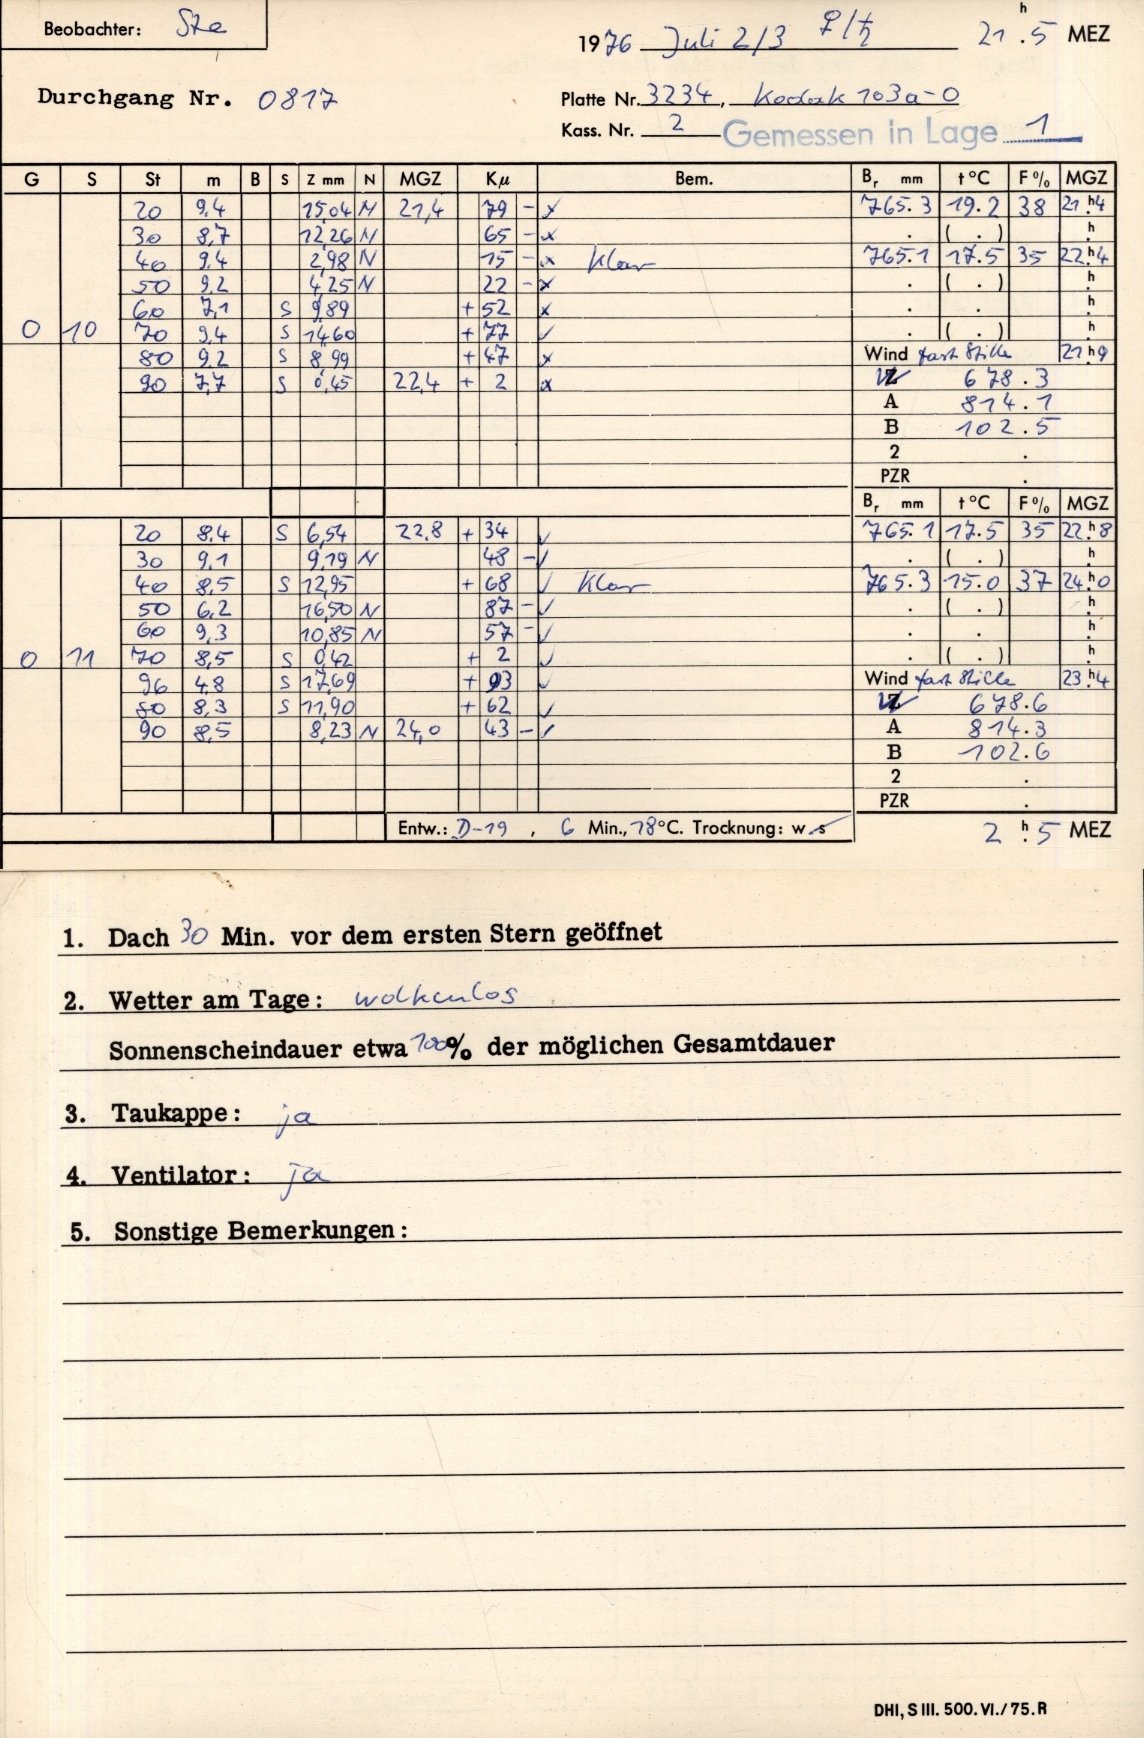 Beobachter: Sze
1976 Juli 2/3 ♀/♄ 21h.5 MEZ
Durchgang Nr. 0817
Platte Nr. 3234, Kodak 103a-O
Kass. Nr. 2 Gemessen in Lage 1
G S St m B S Z mm N MGZ Kμ Bem. Br mm t°C F% MGZ
20 9.4 15,04 N 21,4 79 - x 765.3 19.2 38 21h4
30 8,7 12,26 N 65 - x . ( . ) h
40 9.4 2,98 N 15 - x Klar 765.1 17.5 35 22h4
50 9.2 4,25 N 22 - x . ( . ) h
60 7,1 S 9,89 + 52 x . . h
0 10 70 9,4 S 14,60 + 77 ✓ . ( . ) h
80 9.2 S 8,99 + 47 x Wind fast Stille 21h9
90 7,7 S 0,45 22,4 + 2 x 678.3
A 814.1
B 102.5
2 .
PZR .
Br mm t°C F% MGZ
20 8.4 S 6,54 22,8 + 34 ✓ 765.1 17.5 35 22h8
30 9.1 9,19 N 48 - ✓ . ( . ) h
40 8,5 S 12,95 + 68 ✓ Klar 765.3 15.0 37 24h0
50 6,2 16,50 N 87 - ✓ . ( . ) h
60 9,3 10,85 N 57 - ✓ . . h
0 11 70 8,5 S 0,42 + 2 ✓ . ( . ) h
96 4,8 S 17,69 + 93 ✓ Wind fast Stille 23h4
80 8,3 S 11,90 + 62 ✓ 678.6
90 8,5 8,23 N 24,0 43 - ✓ A 814.3
B 102.6
2 .
PZR .
Entw.: D-19, 6 Min., 18°C. Trocknung: w s 2h.5 MEZ
1. Dach 30 Min. vor dem ersten Stern geöffnet
2. Wetter am Tage: wolkenlos
Sonnenscheindauer etwa 100% der möglichen Gesamtdauer
3. Taukappe: ja
4. Ventilator: ja
5. Sonstige Bemerkungen:
DHI, S III. 500. VI./75. R